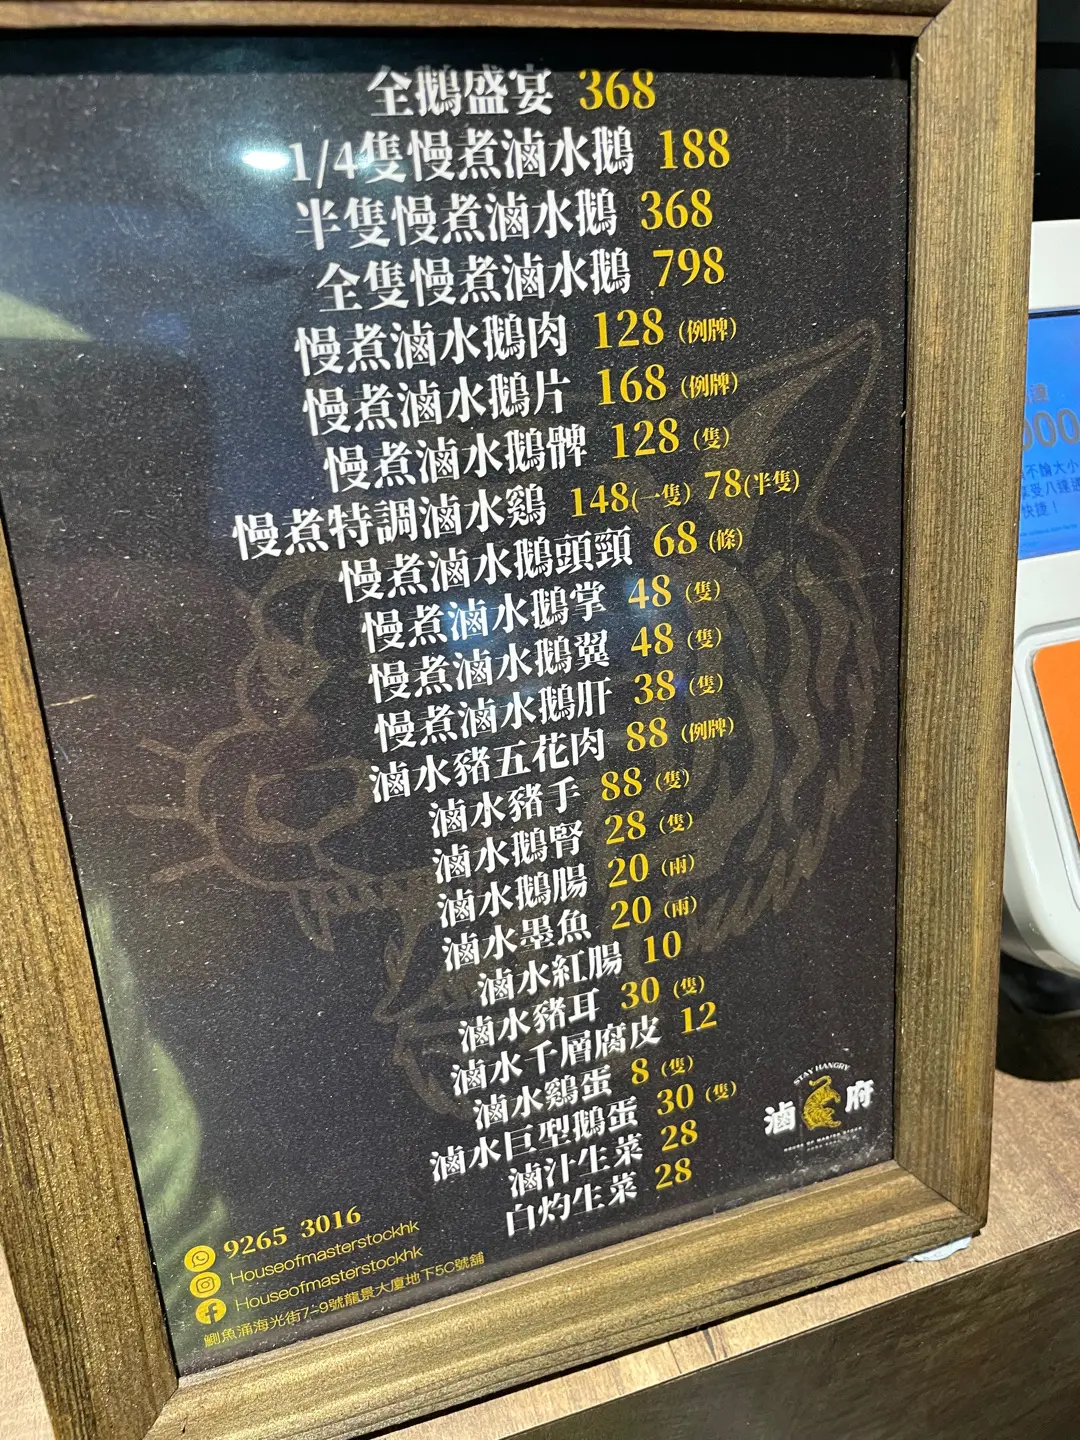 全鵝盛宴 368
1/4隻慢煮滷水鵝 188
半隻慢煮滷水鵝 368
全隻慢煮滷水鵝 798
慢煮滷水鵝肉 128 (例牌)
慢煮滷水鵝片 168 (例牌)
慢煮滷水鵝髀 128 (隻)
慢煮特調滷水鷄 148(一隻) 78(半隻)
慢煮滷水鵝頭頸 68 (條)
慢煮滷水鵝掌 48 (隻)
慢煮滷水鵝翼 48 (隻)
慢煮滷水鵝肝 38 (隻)
滷水豬五花肉 88 (例牌)
滷水豬手 88 (隻)
滷水鵝腎 28 (隻)
滷水鵝腸 20 (兩)
滷水墨魚 20 (兩)
滷水紅腸 10
滷水豬耳 30 (隻)
滷水千層腐皮 12
滷水鷄蛋 8 (隻)
滷水巨型鵝蛋 30 (隻)
滷汁生菜 28
白灼生菜 28
STAY HANGRY
滷府
9265 3016
Houseofmasterstockhk
Houseofmasterstockhk
鰂魚涌海光街7-9號龍景大廈地下5C號舖
不論大小
快捷！